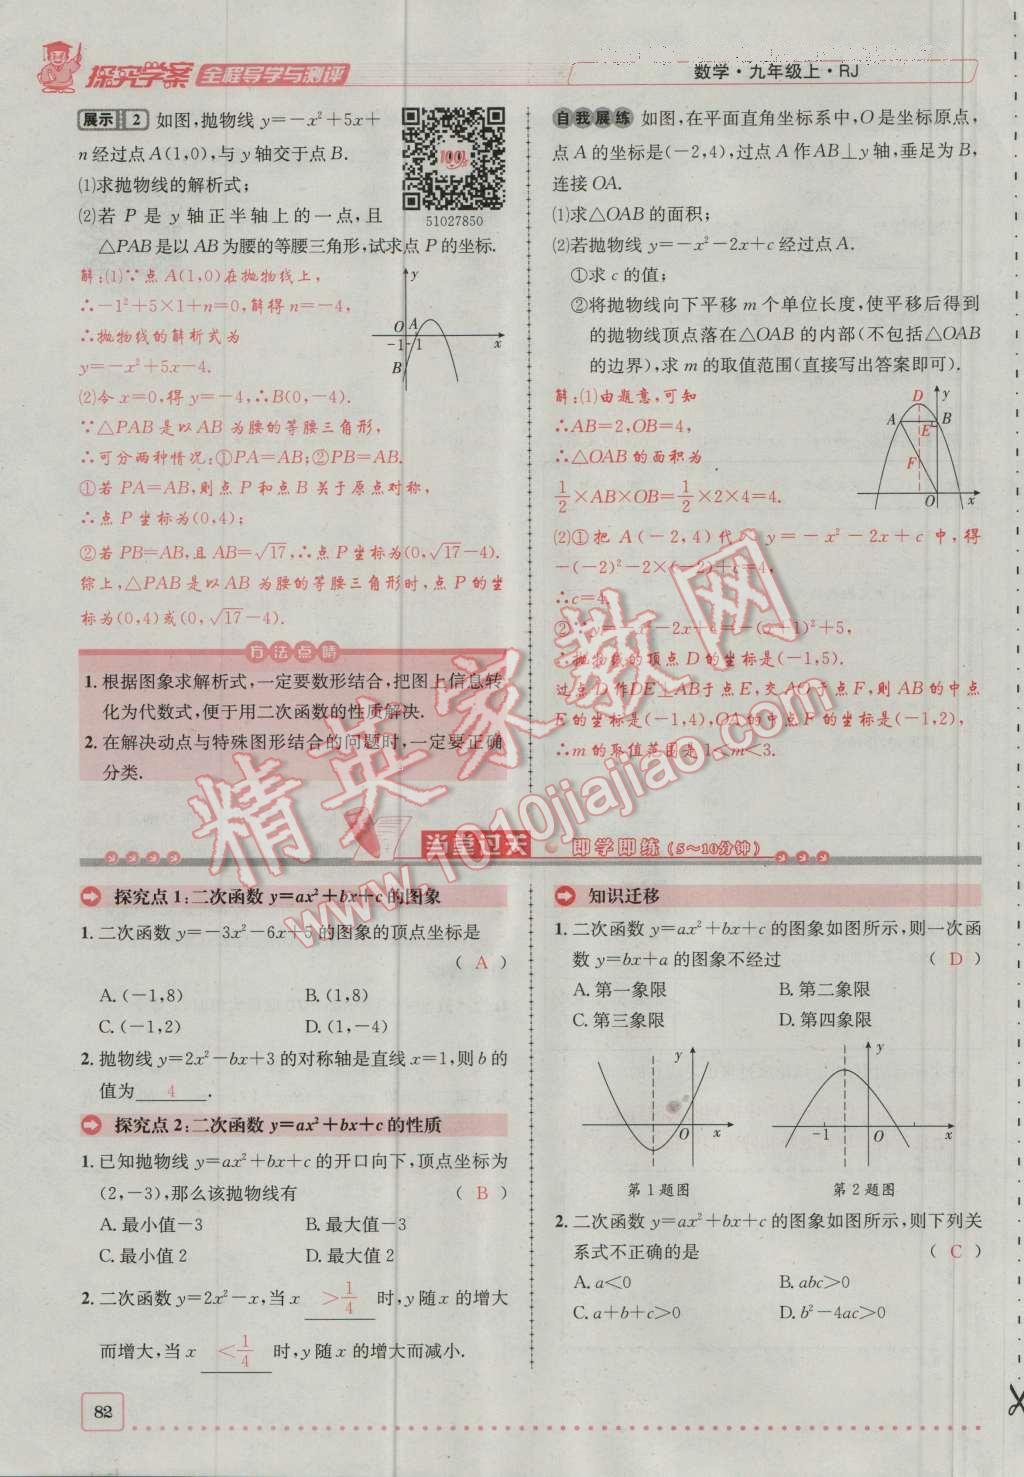 探究学案 全程导学与测评
数学·九年级上·RJ
展示 2 如图,抛物线 y=-x²+5x+
n经过点A(1,0),与y轴交于点B.
(1)求抛物线的解析式;
(2)若 P 是 y 轴正半轴上的一点,且
△PAB是以AB为腰的等腰三角形,试求点P的坐标.
51027850
解:(1)∵点A(1,0)在抛物线上,
∴-1²+5×1+n=0,解得n=-4,
∴抛物线的解析式为
y=-x²+5x-4.
(2)令x=0,得y=-4,∴B(0,-4).
∵△PAB是以AB为腰的等腰三角形,
∴可分两种情况:①PA=AB;②PB=AB.
①若PA=AB,则点P和点B关于原点对称,
∴点P坐标为(0,4);
②若PB=AB,且AB=√17,∴点P坐标为(0,√17-4).
综上,当△PAB是以AB为腰的等腰三角形时,点P的坐
标为(0,4)或(0,√17-4).
y
O A
-1 1 x
B
方法点睛
1. 根据图象求解析式,一定要数形结合,把图上信息转
化为代数式,便于用二次函数的性质解决.
2. 在解决动点与特殊图形结合的问题时,一定要正确
分类.
自我展练 如图,在平面直角坐标系中,O是坐标原点,
点A的坐标是(-2,4),过点A作AB⊥y轴,垂足为B,
连接OA.
(1)求△OAB的面积;
(2)若抛物线y=-x²-2x+c经过点A.
①求c的值;
②将抛物线向下平移m个单位长度,使平移后得到
的抛物线顶点落在△OAB的内部(不包括△OAB
的边界),求m的取值范围(直接写出答案即可).
解:(1)由题意,可知
∴AB=2,OB=4,
∴△OAB的面积为
1/2×AB×OB=1/2×2×4=4.
D y
A E B
F
O x
(2)①把A(-2,4)代入y=-x²-2x+c中,得
-(-2)²-2×(-2)+c=4,
∴c=4.
②∵y=-x²-2x+4=-(x+1)²+5,
∴抛物线的顶点D的坐标是(-1,5).
过点D作DE⊥AB于点E,交AO于点F,则AB的中点
E的坐标是(-1,4),OA的中点F的坐标是(-1,2),
∴m的取值范围是1<m<3.
精英家教网
www.1010jiajiao.com
当堂过关 即学即练(5~10分钟)
探究点1:二次函数y=ax²+bx+c的图象
1. 二次函数y=-3x²-6x+5的图象的顶点坐标是
( A )
A.(-1,8) B.(1,8)
C.(-1,2) D.(1,-4)
2. 抛物线y=2x²-bx+3的对称轴是直线x=1,则b的
值为 4 .
探究点2:二次函数y=ax²+bx+c的性质
1. 已知抛物线y=ax²+bx+c的开口向下,顶点坐标为
(2,-3),那么该抛物线有 ( B )
A. 最小值-3 B. 最大值-3
C. 最小值2 D. 最大值2
2. 二次函数y=2x²-x,当x >1/4 时,y随x的增大
而增大,当x <1/4 时,y随x的增大而减小.
知识迁移
1. 二次函数y=ax²+bx+c的图象如图所示,则一次函
数y=bx+a的图象不经过 ( D )
A. 第一象限 B. 第二象限
C. 第三象限 D. 第四象限
y O x
y -1 O x
第1题图 第2题图
2. 二次函数y=ax²+bx+c的图象如图所示,则下列关
系式不正确的是 ( C )
A. a<0 B. abc>0
C. a+b+c>0 D. b²-4ac>0
82